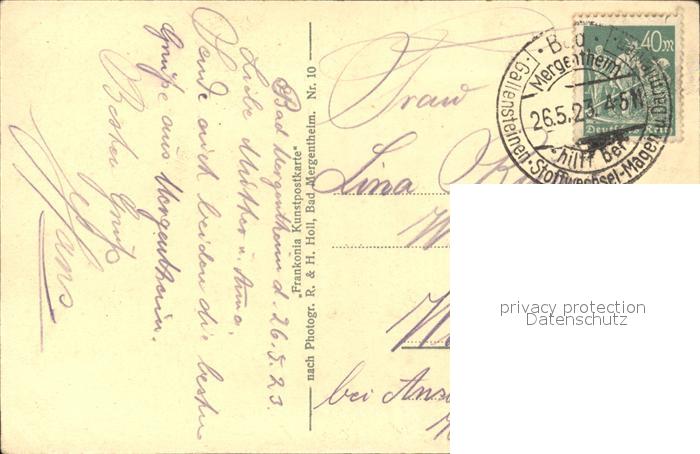 Bad Mergentheim d. 26.5.23.
Liebe Mutter u. Anna!
Sende euch beiden die besten
Grüße aus Mergentheim.
Besten Gruß
Hans
"Frankonia Kunstpostkarte"
nach Photogr. R. & H. Holl, Bad Mergentheim. Nr. 10
Frau
Lina
bei Ans
40 M
Deutsches Reich
Bad
Mergentheim
26.5.23. 4-5 N
hilft bei
Gallensteinen·Stoffwechsel-Magen
privacy protection
Datenschutz